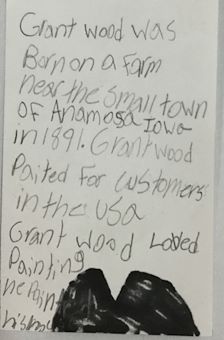 Grant wood was
Born on a farm
near the small town
of Anamosa Iowa
in 1891. Grant wood
Paited For custemers
in the usa
Grant wood Loved
Painting
he Paint
his